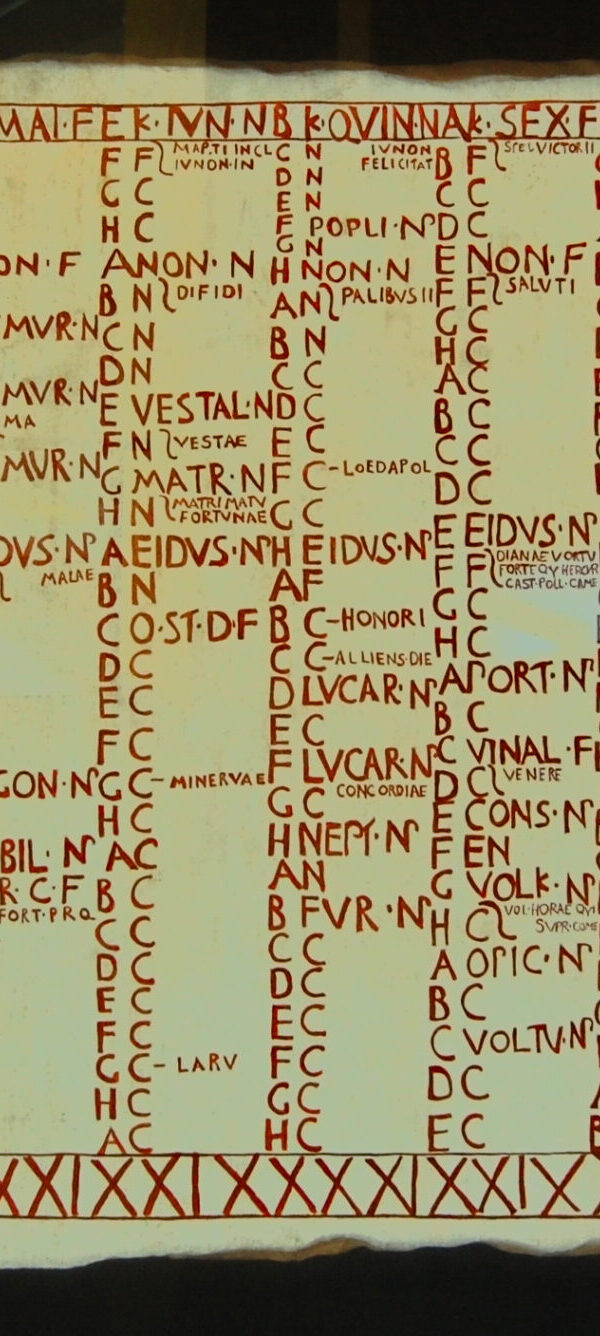 MAI·F E K·IVN·N B K·QVIN·N A K·SEX·F
ON·F
MVR·N
MVR·N
MA
MVR·N
DVS·N
MALAE
GON·N
BIL·N
R·C·F
FORT·PRQ
F F MAP·TI INCL
IVNON·IN
G C
H C
A NON·N
B N DIFIDI
C N
D N
E VESTAL·N
F N VESTAE
G MATR·N
H N MATRI MATV
FORTVNAE
A EIDVS·N
B N
C Q·ST·D·F
D C
E C
F C
G C- MINERVAE
H C
A C
B C
C C
D C
E C
F C
G C- LARV
H C
A C
C N
D N
E N
F POPLI·N
G N
H NON·N
A N PALIBVS II
B N
C C
D C
E C
F C-LOEDAPOL
G C
H EIDVS·N
A F
B C-HONORI
C C-ALLIENS·DIE
D LVCAR·N
E C
F LVCAR·N
G C CONCORDIAE
H NEPT·N
A N
B FVR·N
C C
D C
E C
F C
G C
H C
IVNON
FELICITAT
B F SPEI VICTOR II
C C
D C
E NON·F
F F SALVTI
G C
H C
A C
B C
C C
D C
E EIDVS·N
F F DIANAE VORTV
FORTEQV HERCR
CAST·POLL·CAME
G C
H C
A PORT·N
B C
C VINAL·F
D C VENERE
E CONS·N
F EN
G VOLK·N
H C VOL·HORAE QVI
SVPR·COME
A OPIC·N
B C
C VOLTV·N
D C
E C
XXIXXI XXXXI XXIX